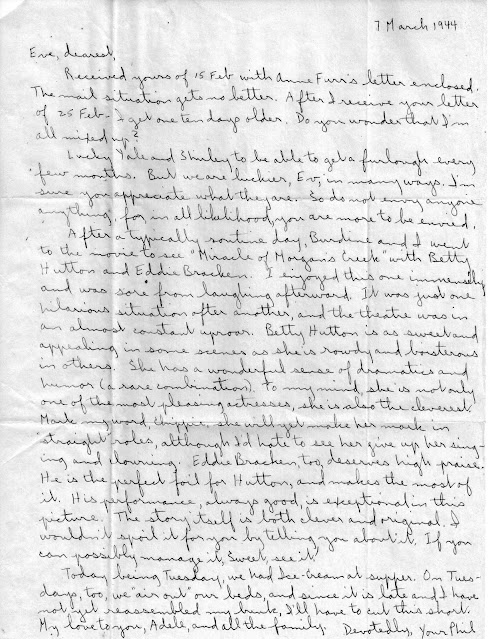 7 March 1944
Eve, dearest,
Received yours of 15 Feb with Anne Furr's letter enclosed.
The mail situation gets no better. After I receive your letter
of 25 Feb - I get one ten days older. Do you wonder that I'm
all mixed up?
Lucky Yale and Shirley to be able to get a furlough every
few months. But we are luckier, Ev, in many ways. I'm
sure you appreciate what they are. So do not envy anyone
anything, for in all likelihood, you are more to be envied.
After a typically routine day, Burdine and I went
to the movie to see "Miracle of Morgan's Creek" with Betty
Hutton and Eddie Bracken. I enjoyed this one immensely
and was sore from laughing afterward. It was just one
hilarious situation after another, and the theatre was in
an almost constant uproar. Betty Hutton is as sweet and
appealing in some scenes as she is rowdy and boisterous
in others. She has a wonderful sense of dramatics and
humor (a rare combination). To my mind she is not only
one of the most pleasing actresses, she is also the cleverest.
Mark my word, Chippie, she will yet make her mark in
"straight" roles, although I'd hate to see her give up her sing-
ing and clowning. Eddie Bracken, too, deserves high praise.
He is the perfect foil for Hutton, and makes the most of
it. His performance, always good, is exceptional in this
picture. The story itself is both clever and original. I
wouldn't spoil it for you by telling you about it. If you
can possibly manage it, Sweet, see it!
Today being Tuesday, we had Ice-cream at supper. On Tues-
days, too, we "air out" our beds, and since it is late and I have
not yet reassembled my bunk, I'll have to cut this short.
My love to you, Adele, and all the family. Devotedly, Your Phil